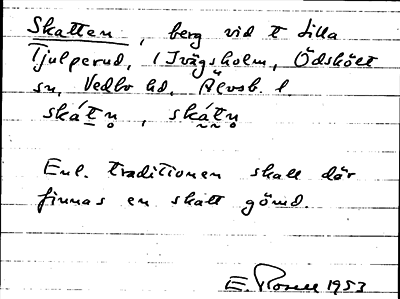 Skatten, berg vid t Lilla
Tjulperud, 1 Ivägsholm, Ödskölt
sn, Vedbo hd, Älvsb. l.
skát̲n̥, skát̰n̰̥
Enl. traditionen skall där
finnas en skatt gömd.
E. Rosell 1953